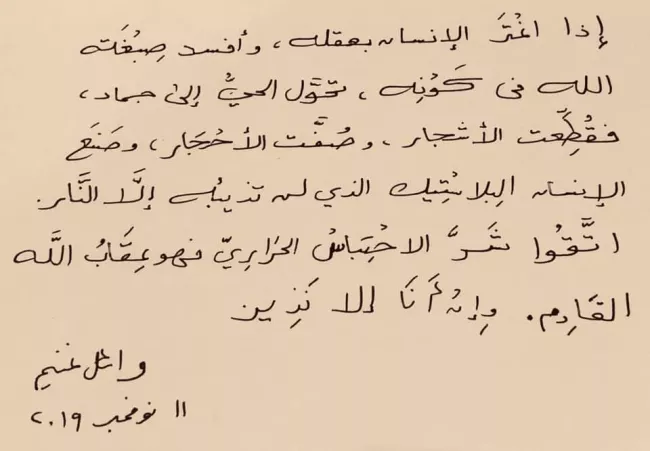 إذا اغْتَرَّ الإنسان بعقله، وأفسد صِبْغَته
الله في كَوْنِه، تحَوَّل الحيُّ إلى جماد،
فقُطِّعت الأشجار، وصُفَّت الأحْجَار، وصَنَع
الإنسان البِلاسْتِيك الذي لن تذيبُه إلَّا النَّار.
اتَّقُوا شَرَّ الاحْتِبَاسُ الحَرَارِيّ فهو عِقَابُ اللَّه
القَادِم. وإنْ أَنَا إلا نَذِير
وائل غنيم
١١ نوفمبر ٢٠١٩